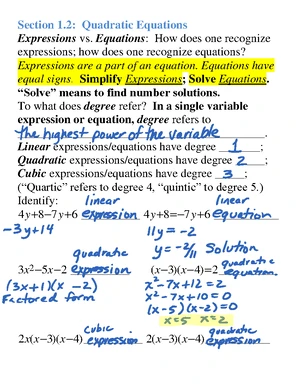 Section 1.2: Quadratic Equations
Expressions vs. Equations: How does one recognize
expressions; how does one recognize equations?
Expressions are a part of an equation. Equations have
equal signs. Simplify Expressions; Solve Equations.
“Solve” means to find number solutions.
To what does degree refer? In a single variable
expression or equation, degree refers to
the highest power of the variable.
Linear expressions/equations have degree 1;
Quadratic expressions/equations have degree 2;
Cubic expressions/equations have degree 3;
(“Quartic” refers to degree 4, “quintic” to degree 5.)
Identify: linear linear
4y+8−7y+6 expression 4y+8=−7y+6 equation
−3y+14 11y = −2
y = −2/11 Solution
quadratic quadratic
3x²−5x−2 expression (x−3)(x−4)=2 equation.
(3x+1)(x−2) x²−7x+12=2
Factored form x²−7x+10=0
(x−5)(x−2)=0
x=5 x=2
cubic quadratic
2x(x−3)(x−4) expression 2(x−3)(x−4) expression